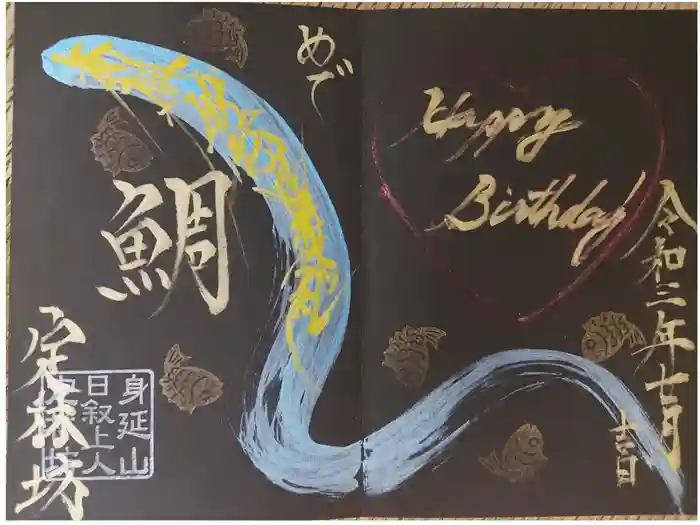 Happy
Birthday
令和三年七月
吉日
めで
鯛
身延山
日叙上人
定林坊